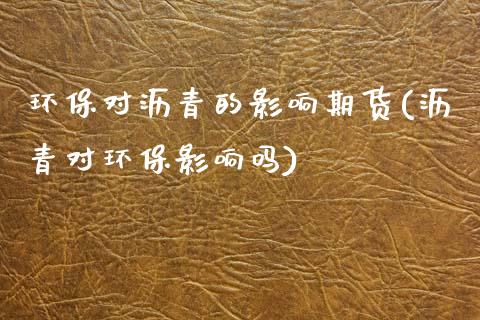 环保对沥青的影响期货(沥
青对环保影响吗)